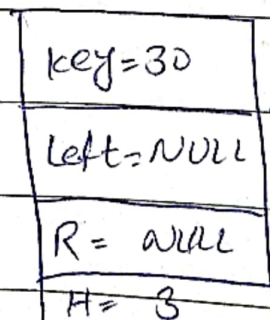 key=30
Left=NULL
R= NULL
H= 3